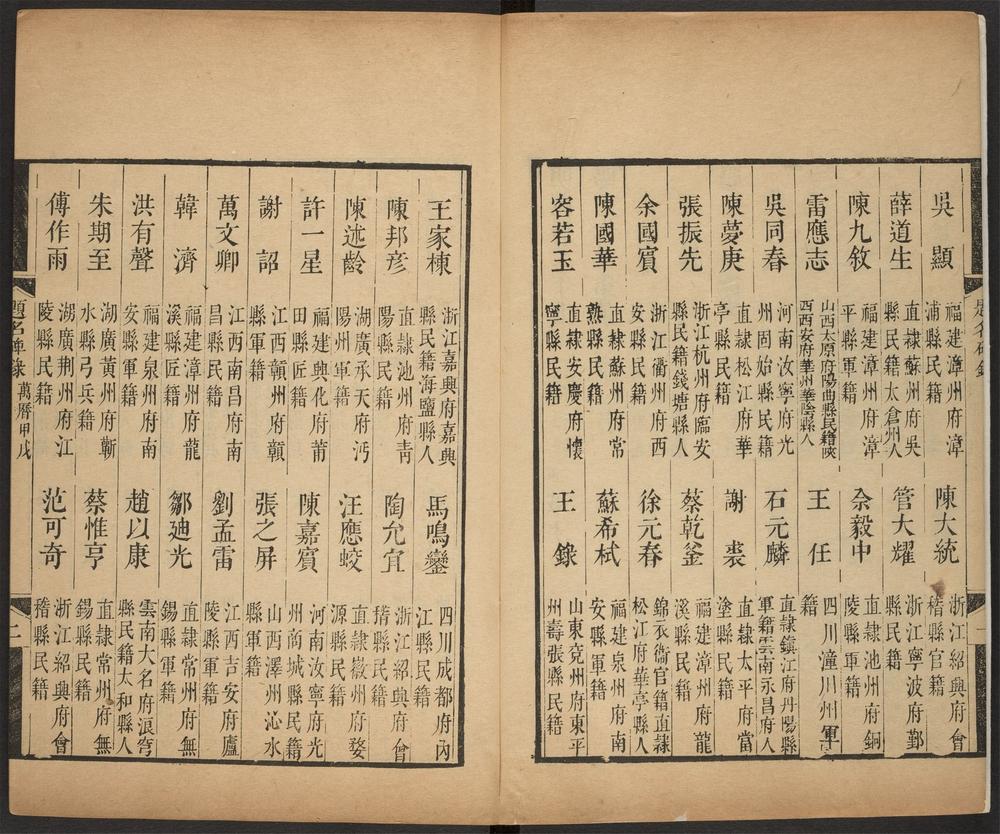 吳顯
浦縣民籍
福建漳州府漳
薛道生
縣民籍太倉州人
直隸蘇州府吳
陳九敘
平縣軍籍
福建漳州府漳
雷應志
山西太原府陽曲縣民籍陝
西西安府華州華陰縣人
吳同春
河南汝寧府光
州固始縣民籍
陳夢庚
直隸松江府華
亭縣民籍
張振先
浙江杭州府臨安
縣民籍錢塘縣人
余國賓
浙江衢州府西
安縣民籍
陳國華
直隸蘇州府常
熟縣民籍
容若玉
直隸安慶府懷
寧縣民籍
陳大統
浙江紹興府會
稽縣官籍
管大耀
浙江寧波府鄞
縣民籍
佘毅中
直隸池州府銅
陵縣軍籍
王任
四川潼川州軍
籍
石元麟
直隸鎮江府丹陽縣
軍籍雲南永昌府人
謝裘
直隸太平府當
塗縣民籍
蔡乾釜
福建漳州府龍
溪縣民籍
徐元春
錦衣衞官籍直隸
松江府華亭縣人
蘇希栻
福建泉州府南
安縣軍籍
王錄
山東兗州府東平
州壽張縣民籍
王家棟
浙江嘉興府嘉興
縣民籍海鹽縣人
陳邦彥
直隸池州府青
陽縣民籍
陳述齡
湖廣承天府沔
陽州籍
許一星
福建興化府莆
田縣匠籍
謝詔
江西贛州府贛
縣軍籍
萬文卿
江西南昌府南
昌縣民籍
韓濟
福建漳州府龍
溪縣匠籍
洪有聲
福建泉州府南
安縣軍籍
朱期至
湖廣黃州府蘄
水縣弓兵籍
傅作雨
湖廣荆州府江
陵縣民籍
馬鳴鑾
四川成都府內
江縣民籍
陶允宜
浙江紹興府會
稽縣民籍
汪應蛟
直隸徽州府婺
源縣民籍
陳嘉賓
河南汝寧府光
州商城縣民籍
張之屏
山西澤州沁水
縣軍籍
劉孟雷
江西吉安府廬
陵縣軍籍
鄒迪光
直隸常州府無
錫縣軍籍
趙以康
雲南大名府浪穹
縣民籍太和縣人
蔡惟亨
直隸常州府無
錫縣民籍
范可奇
浙江紹興府會
稽縣民籍
題名碑錄 萬曆甲戌
二